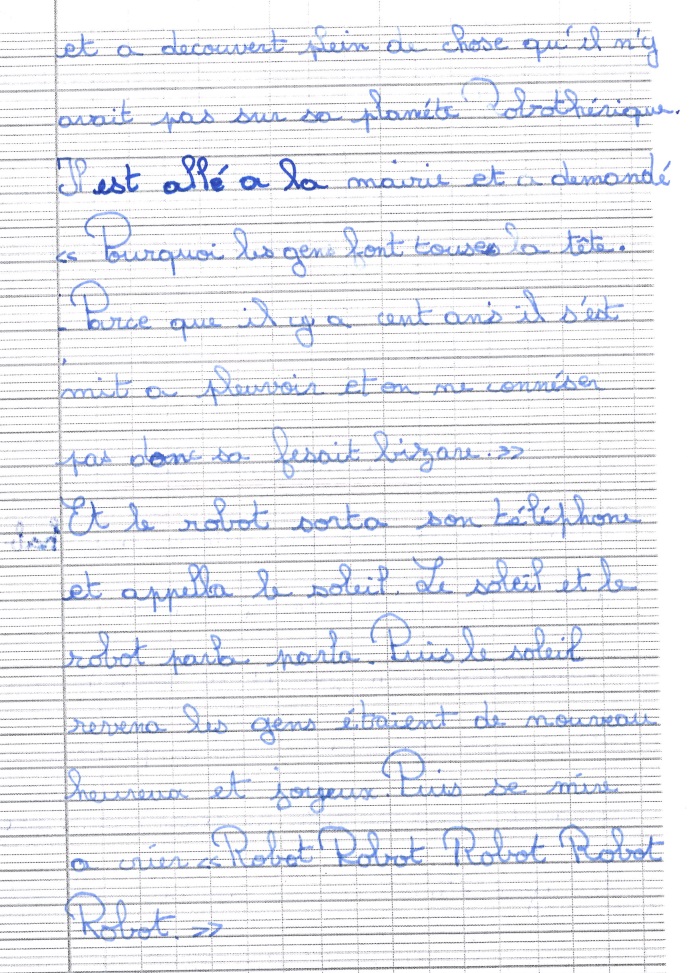 et a decouvert plein de chose qu'il n'y
avait pas sur sa planéte Robothérique.
Il est allé a la mairie et a demandé
« Pourquoi les gens font touses la tête.
- Parce que il y a cent ans il s'est
mit a pleuvoir et on ne connéser
pas donc sa fesait bizare. »
Et le robot sorta son téléphone
et appella le soleil. Le soleil et le
robot parla parla. Puis le soleil
revena les gens étaient de nouveau
heureux et joyeux. Puis se mire
a crier « Robot Robot Robot Robot
Robot. »